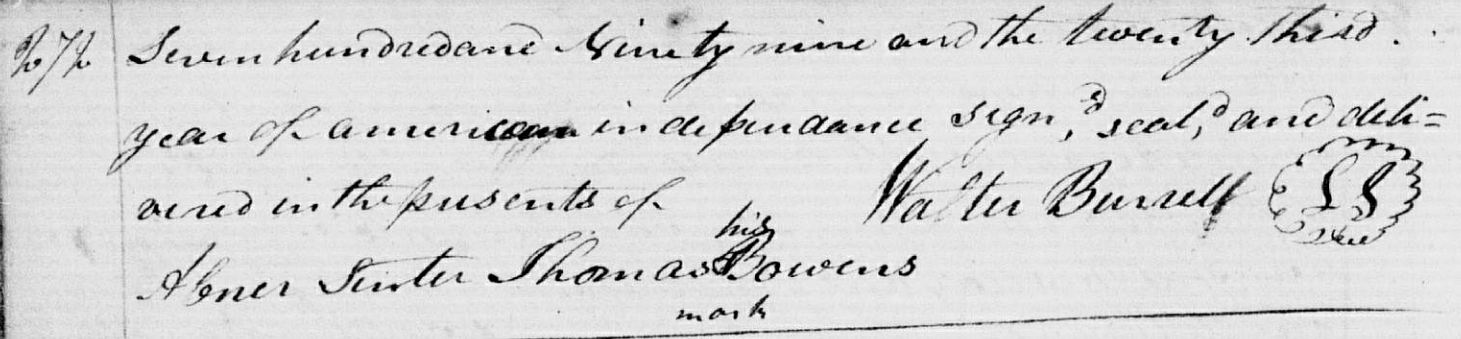 Seven hundred and Ninety nine and the twenty third.
year of american independance sign,d seal,d and deli=
vered in the presents of Walter Burrell LS
his
Abner Senter Thomas B Bowens
mark